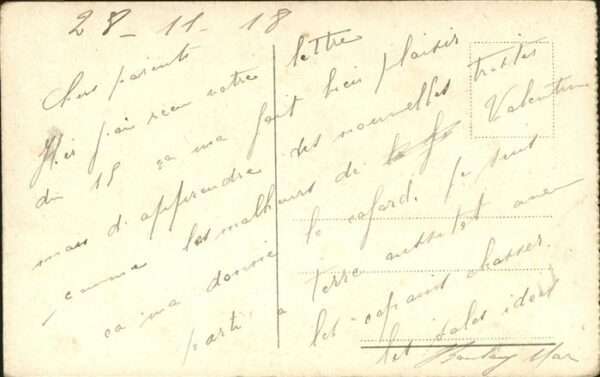 28-11-18
Chers parents
Hier j'ai recu votre lettre
du 18 ça ma fait bien plaisir
mais d'apprendre des nouvelles tristes
comme les malheurs de Valentine
ça ma donné le cafard. Je suis
parti a terre aussitot avec
les copains chasser
les sales idées